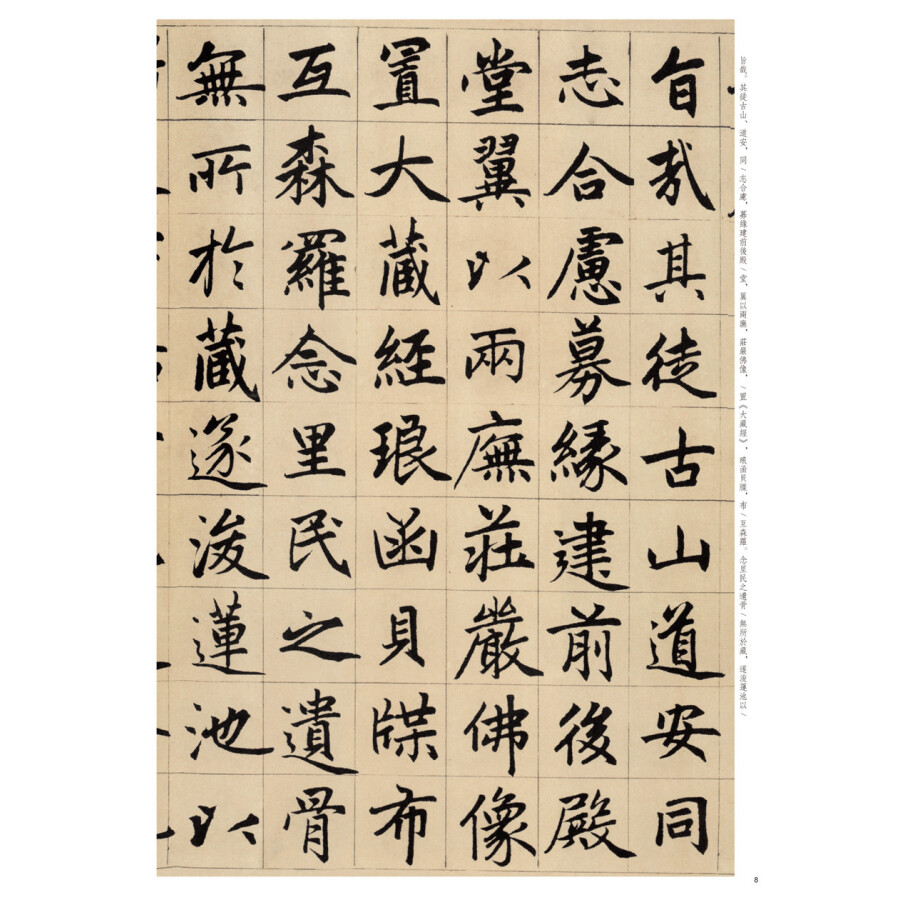 旨哉其徒古山道安同
志合慮募緣建前後殿
堂翼以兩廡莊嚴佛像
置大藏經琅函貝牒布
互森羅念里民之遺骨
無所於藏遂浚蓮池以
旨哉。其徒古山、道安,同/志合慮,募緣建前後殿/堂,翼以兩廡,莊嚴佛像,/置《大藏經》,琅函貝牒,布/互森羅。念里民之遺骨/無所於藏,遂浚蓮池以/
8